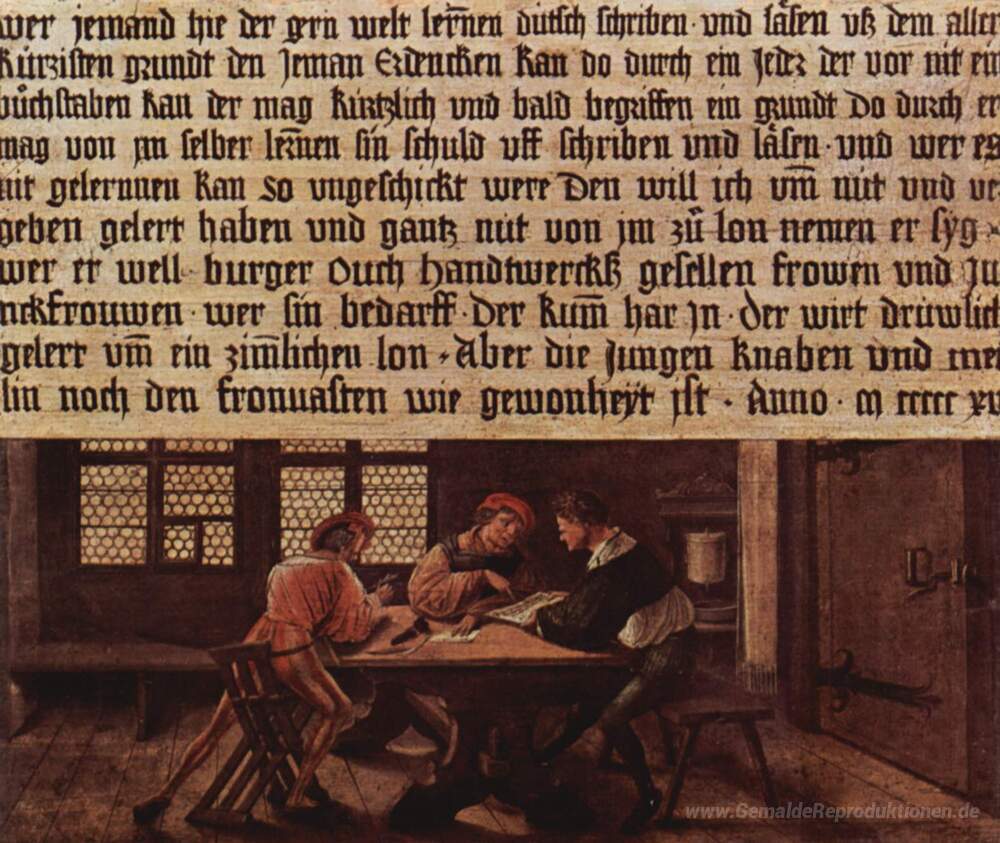 wer jemand hie der gern welt lern̄en dütsch schriben · vnd läsen vß dem aller
kürzisten grundt den Jeman Erdencken kan do durch ein Jeder der vor nit ein
bůchstaben kan der mag kürtzlich vnd bald begriffen ein grundt do durch er
mag von jm selber lern̄en sin schuld vff schriben vnd läsen · vnd wer es
nit gelernnen kan so vngeschickt were Den will ich vm̄ nüt vnd ve
geben gelert haben vnd gantz nüt von jm zů lon nemen er syg ·
wer er well burger Ouch handtwerckß gesellen frowen vnd ju
nckfrouwen · wer sin bedarff · Der kum̄ har jn · der wirt drüwlich
gelert vm̄ ein zim̄lichen lon · Aber die jungen knaben vnd mei
lin noch den fronuasten wie gewonheyt jst · Anno · m ccccc xv
www.GemaldeReproduktionen.de